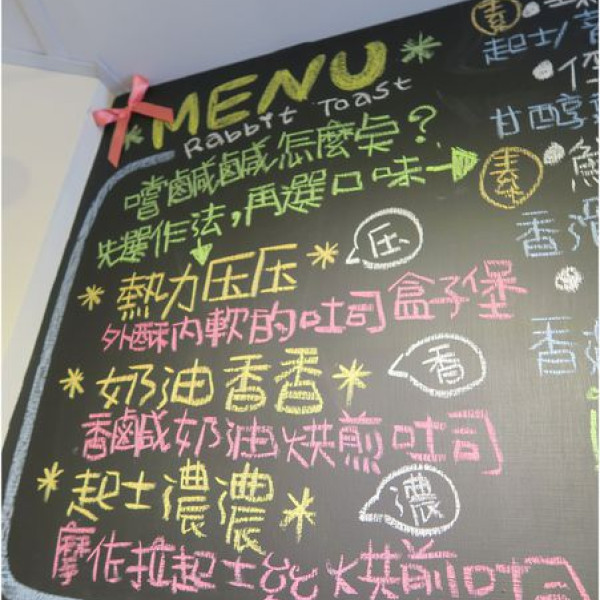 MENU
Rabbit Toast
嚐鹹鹹怎麼点?
先選作法,再選口味
熱力压压
压
外酥內軟的吐司盒子堡
奶油香香
香
香鹹奶油烘煎吐司
起士濃濃
濃
摩佐拉起士丝丝烘煎吐司
素
起士/
甘醇
素
香
香